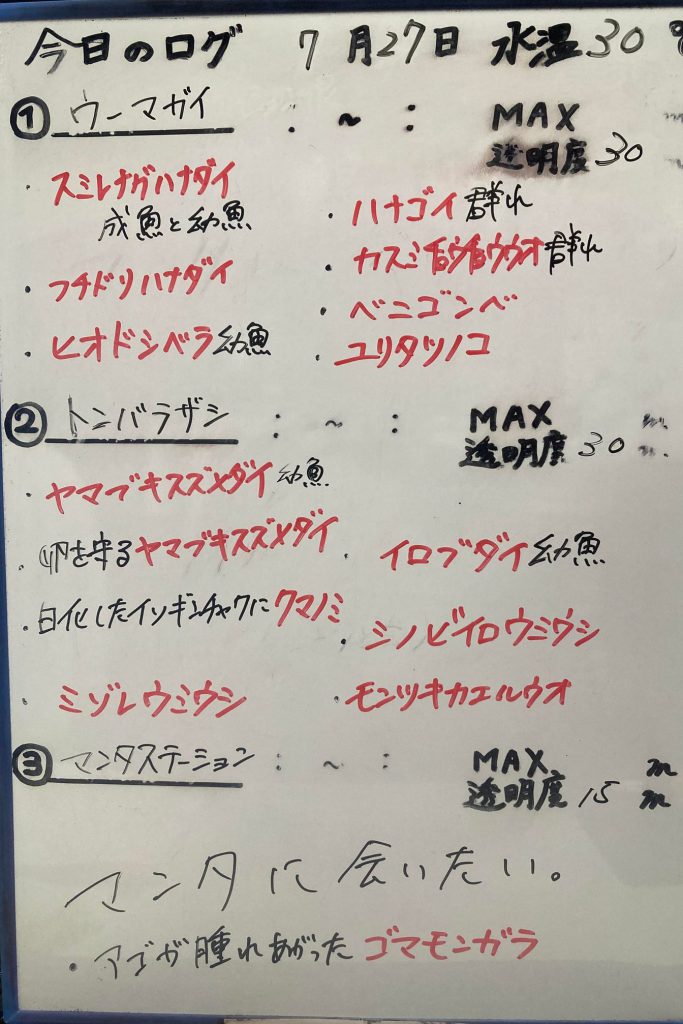 今日のログ 7月27日 水温30℃
① ウーマガイ : ~ : MAX m
透明度30 m
・スミレナガハナダイ
成魚と幼魚
・フチドリハナダイ
・ヒオドシベラ幼魚
・ハナゴイ群れ
・カスミチョウチョウウオ群れ
・ベニゴンベ
・ユリタツノコ
② トンバラザシ : ~ : MAX m
透明度30 m
・ヤマブキスズメダイ幼魚
・卵を守るヤマブキスズメダイ
・白化したイソギンチャクにクマノミ
・ミゾレウミウシ
・イロブダイ幼魚
・シノビイロウミウシ
・モンツキカエルウオ
③ マンタステーション : ~ : MAX m
透明度15 m
マンタに会いたい。
・アゴが腫れあがったゴマモンガラ